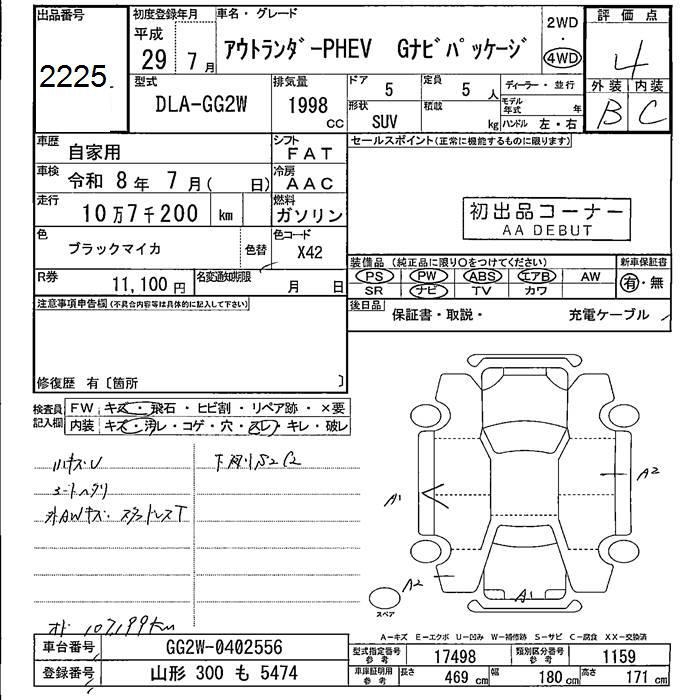 出品番号
2225
初度登録年月
平成
29年 7月
車名・グレード
アウトランダｰPHEV Gナビパッケージ
2WD
・
4WD
評価点
4
外装 内装
B C
型式
DLA-GG2W
排気量
1998 cc
ドア 5
定員 5 人
ディーラー・並行
形状 SUV
積載 kg
モデル年式 年
ハンドル 左・右
車歴 自家用
シフト FAT
セールスポイント(正常に機能するものに限ります)
車検 令和 8年 7月( 日)
冷房 AAC
走行 10万7千200 km
燃料 ガソリン
初出品コーナー
AA DEBUT
色 ブラックマイカ 色替
色コード X42
装備品 (純正品に限り○をつけてください)
新車保証書
PS PW ABS エアB AW
有・無
SR ナビ TV カワ
R券 11,100円
名変通知期限 月 日
後日品 保証書・取説・ 充電ケーブル
注意事項申告欄(不具合内容等は具体的に記入して下さい)
修復歴 有〔箇所 〕
検査員記入欄
FW キズ・飛石・ヒビ割・リペア跡・×要
内装 キズ・汚レ・コゲ・穴・スレ・キレ・破レ
下廻りS2C2
A1
A2
A2
A1
スペア
107,199km
A－キズ E－エクボ U－凹み W－補修跡 S－サビ C－腐食 XX－交換済
車台番号 GG2W-0402556
型式指定番号 参考 17498
類別区分番号 参考 1159
登録番号 山形 300 も 5474
車庫証明用 参考 長さ 469 cm 幅 180 cm 高さ 171 cm